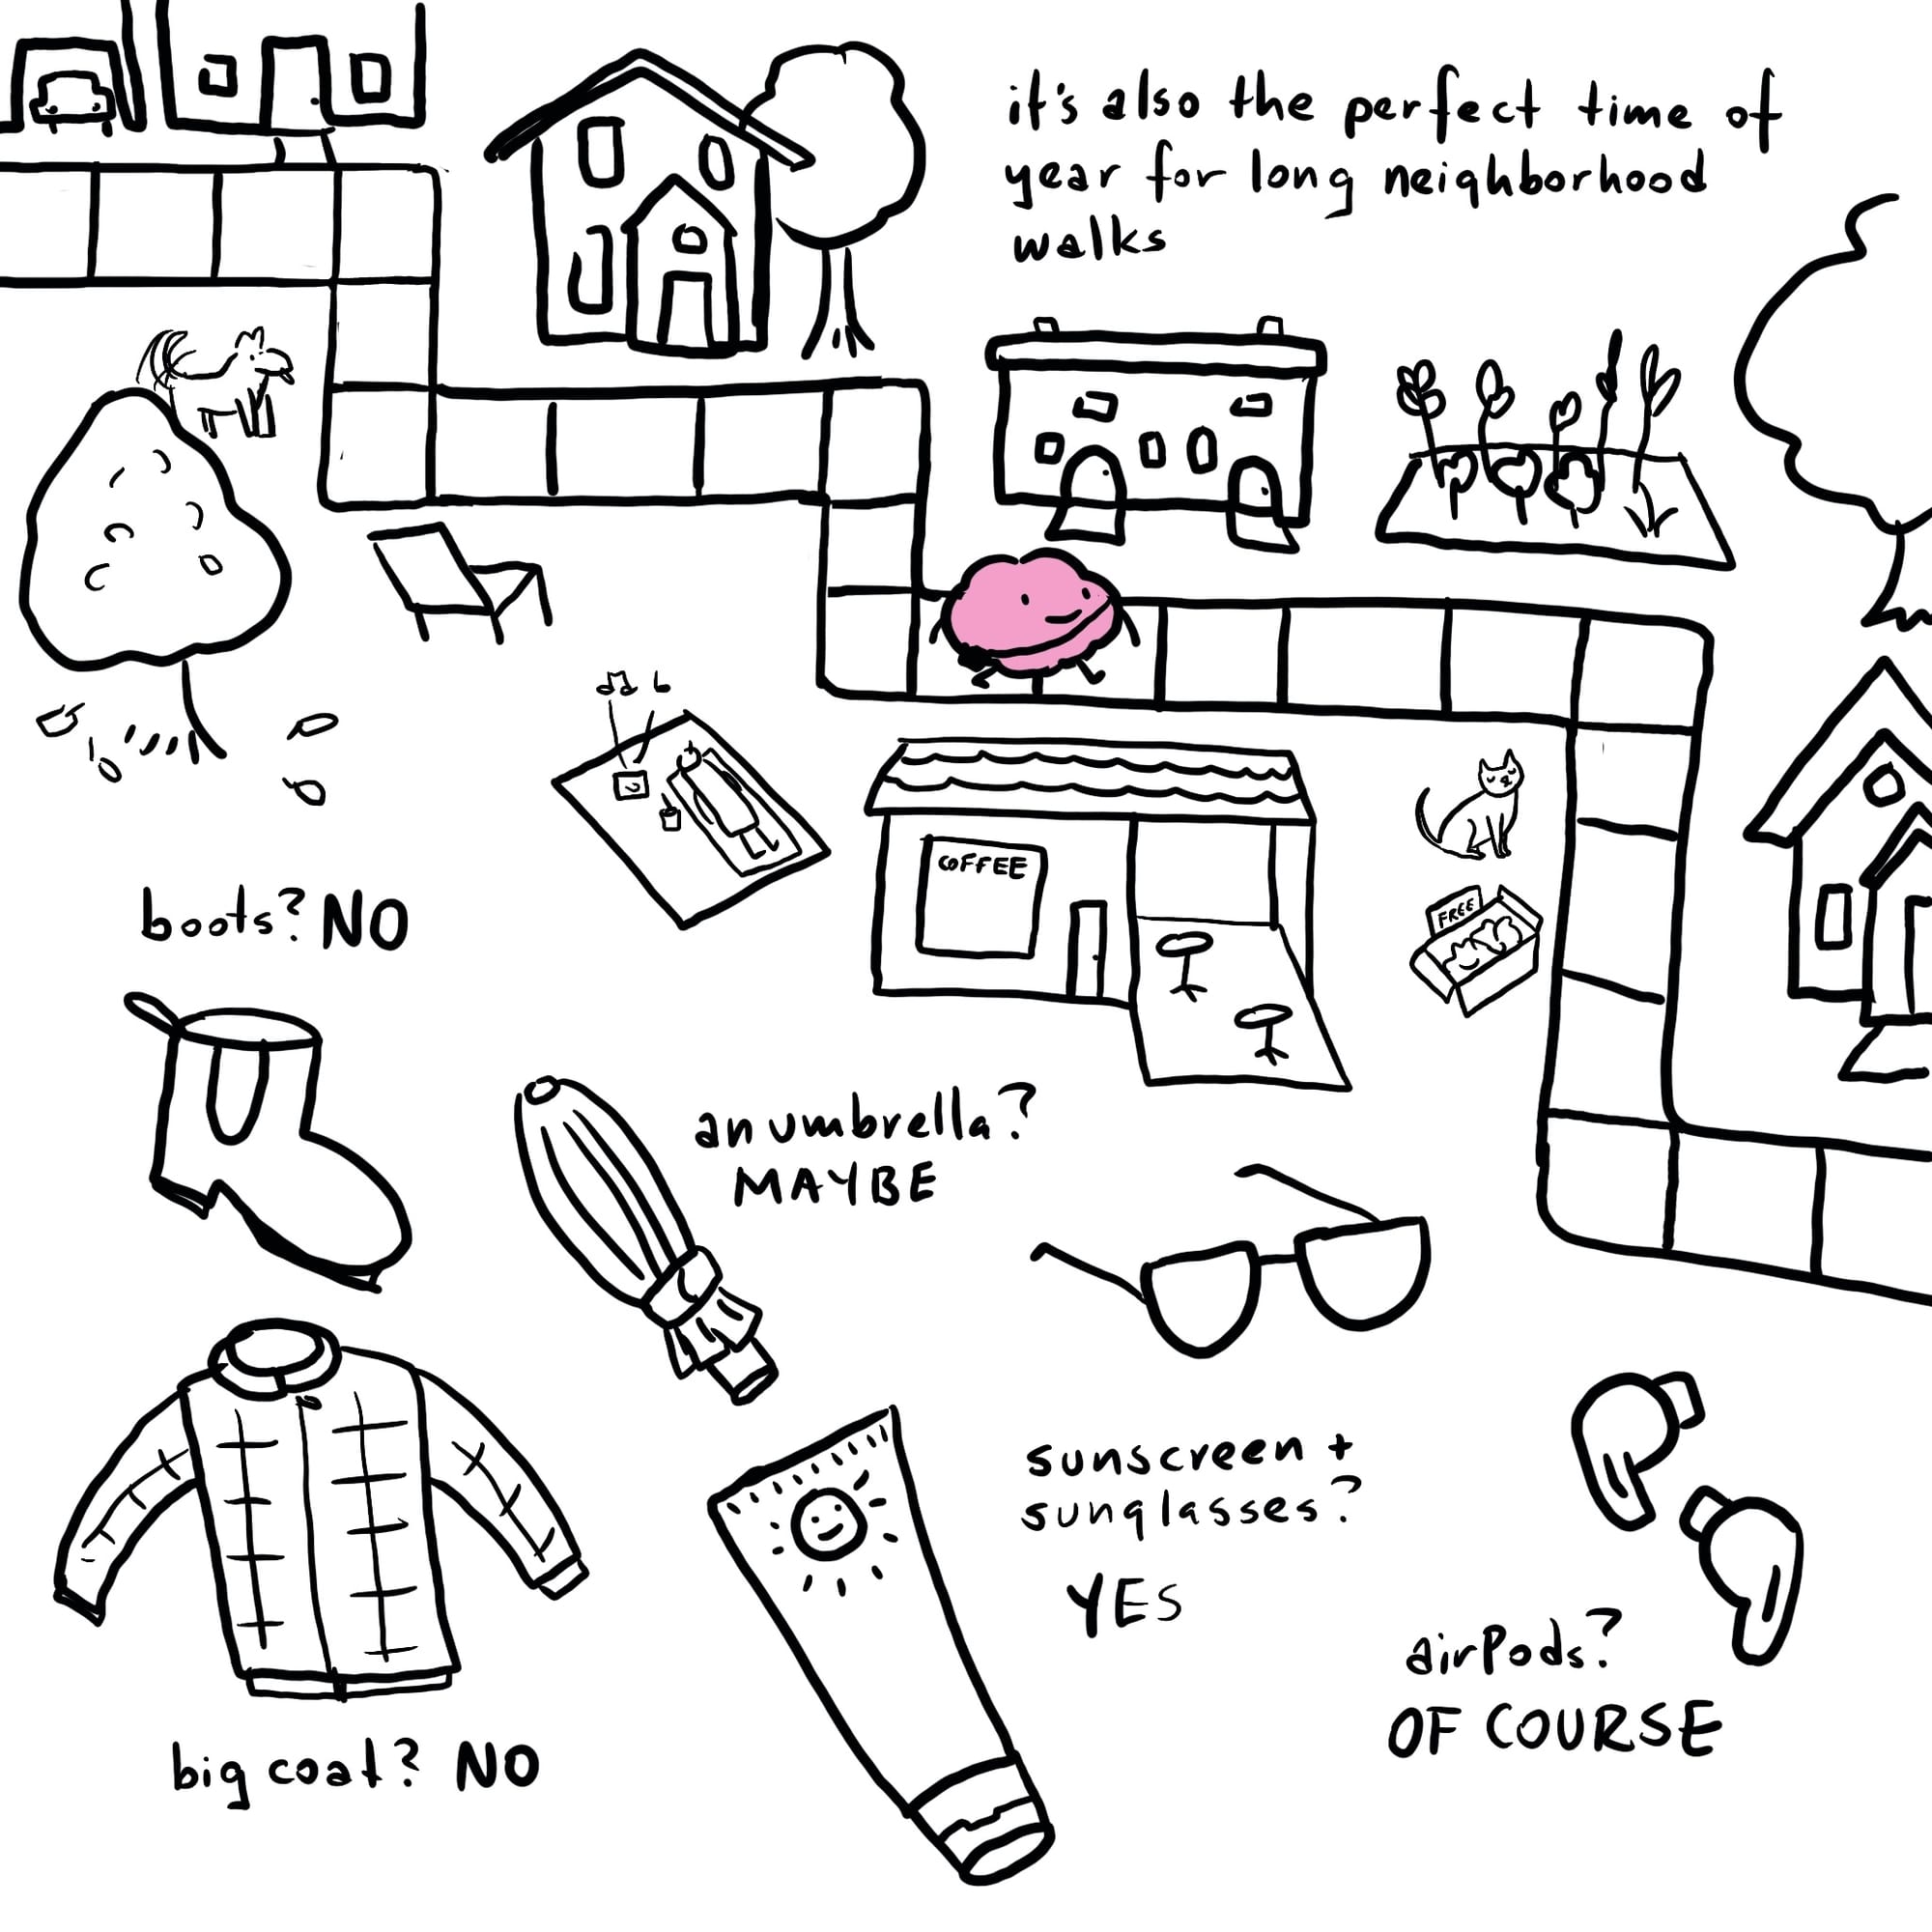 it's also the perfect time of
year for long neighborhood
walks
COFFEE
FREE
boots? NO
an umbrella?
MAYBE
sunscreen +
sunglasses?
YES
airPods?
OF COURSE
big coat? NO